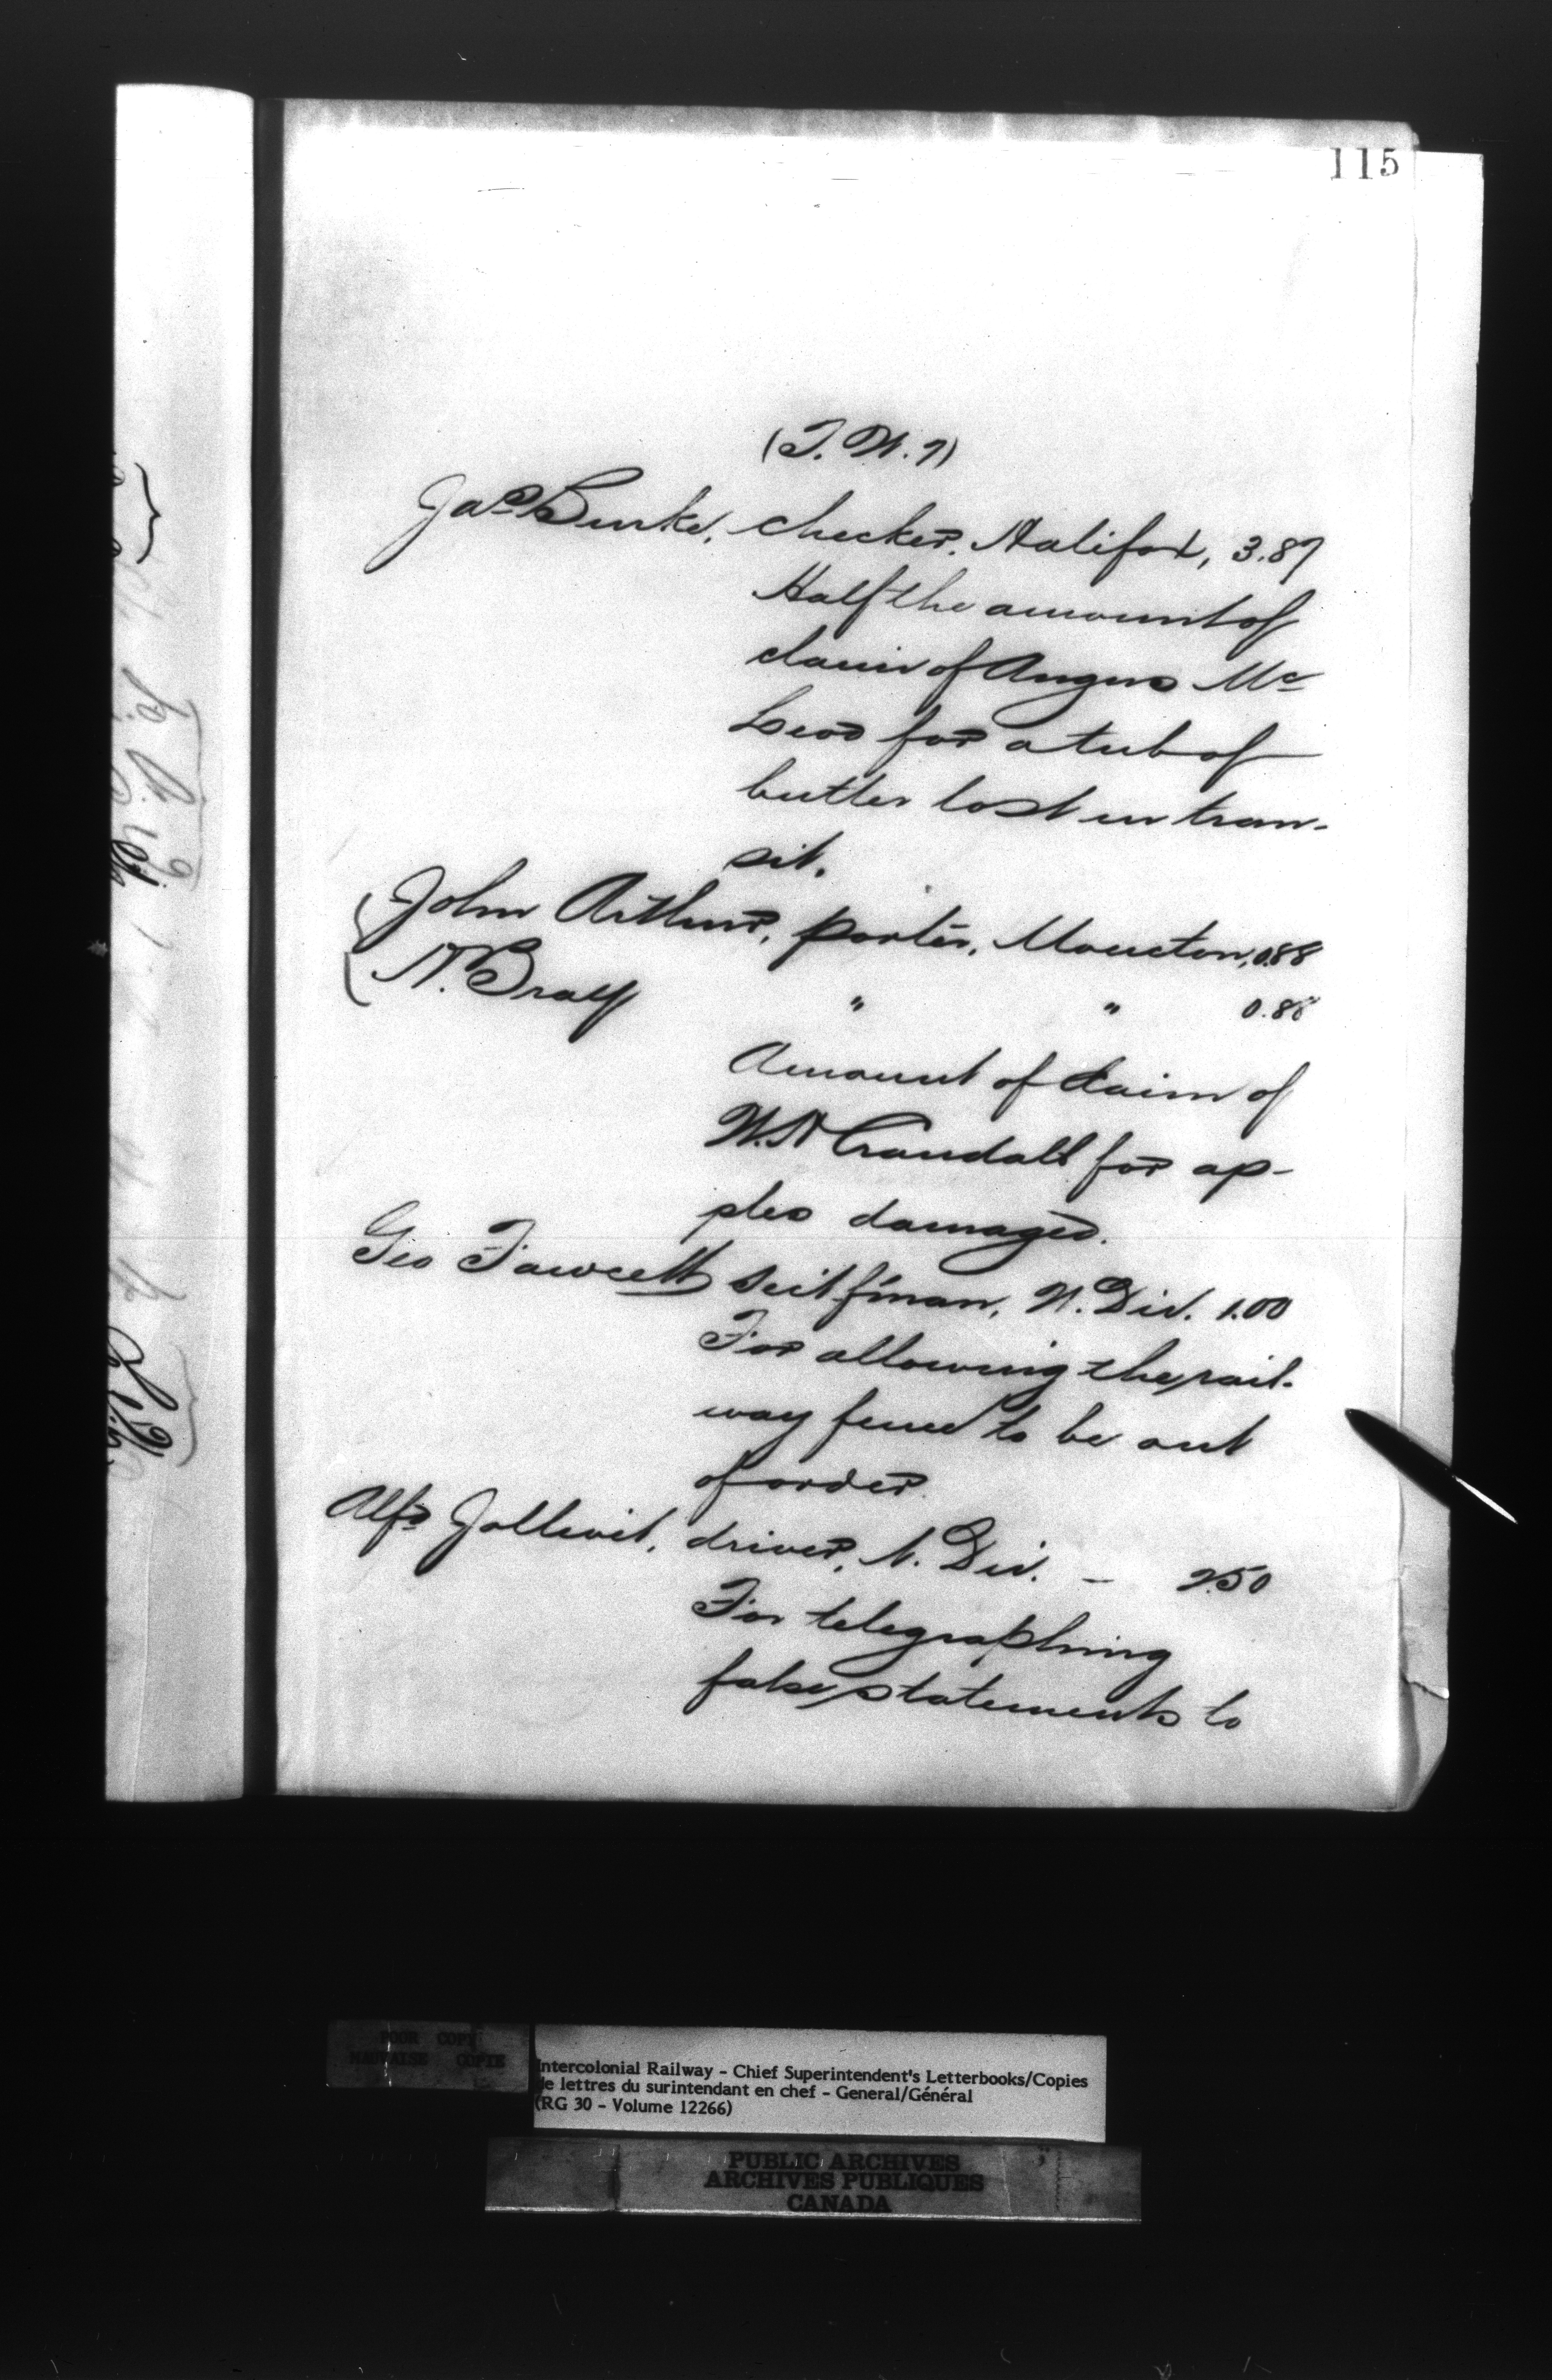 115
(T.W.7)
Jas Burke, checker, Halifax, 3.87
Half the amount of
claim of Angus Mc
Leod for a tub of
butter lost in tran-
sit.
John Arthur, porter, Moncton, 0.88
N. Bray " " 0.88
Amount of claim of
W.H Crandall for ap-
ples damaged.
Geo Fawcett sect f'man, N. Div. 1.00
For allowing the rail-
way fence to be out
of order.
Alfd Jollivet, driver, N. Div. - 2.50
For telegraphing
false statements to
POOR COPY
MAUVAISE COPIE
Intercolonial Railway - Chief Superintendent's Letterbooks/Copies
de lettres du surintendant en chef - General/Général
(RG 30 - Volume 12266)
PUBLIC ARCHIVES
ARCHIVES PUBLIQUES
CANADA